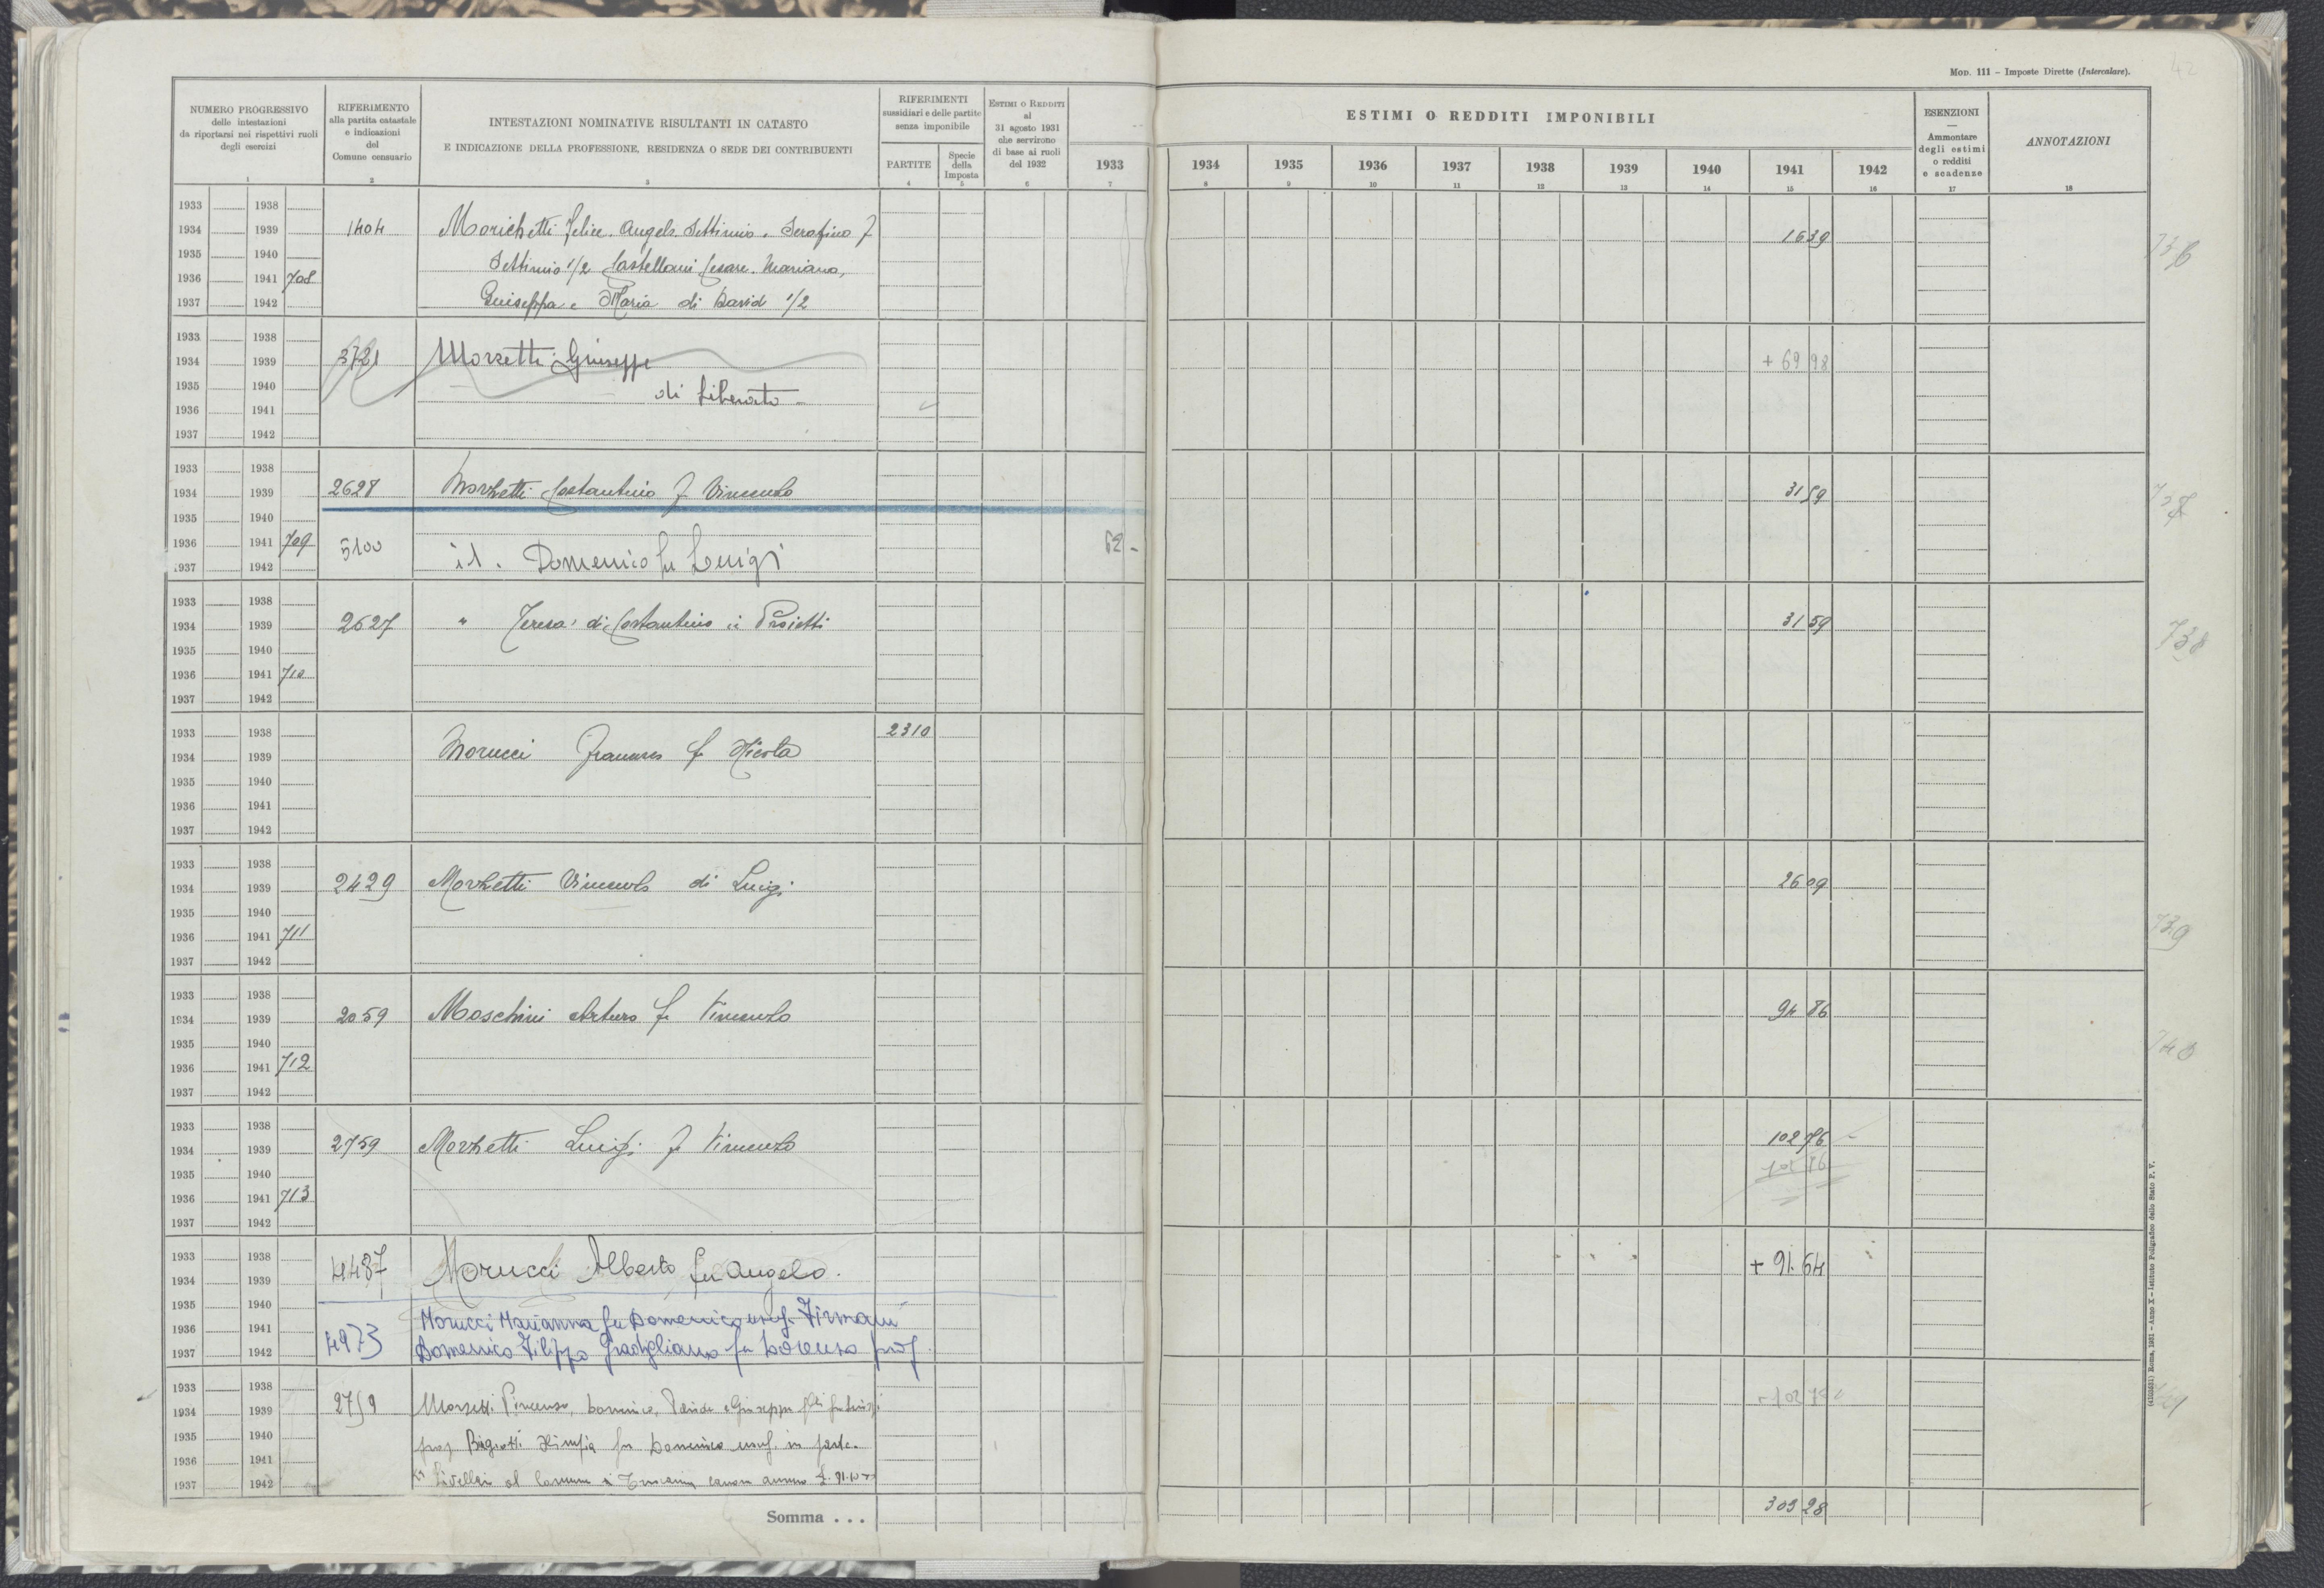 Mod. 111 – Imposte Dirette (Intercalare).
42
NUMERO PROGRESSIVO
delle intestazioni
da riportarsi nei rispettivi ruoli
degli esercizi
1
RIFERIMENTO
alla partita catastale
e indicazioni
del
Comune censuario
2
INTESTAZIONI NOMINATIVE RISULTANTI IN CATASTO
E INDICAZIONE DELLA PROFESSIONE, RESIDENZA O SEDE DEI CONTRIBUENTI
3
RIFERIMENTI
sussidiari e delle partite
senza imponibile
PARTITE
4
Specie
della
Imposta
5
ESTIMI O REDDITI
al
31 agosto 1931
che servirono
di base ai ruoli
del 1932
6
1933
7
ESTIMI O REDDITI IMPONIBILI
1934 1935 1936 1937 1938 1939 1940 1941 1942
8 9 10 11 12 13 14 15 16
ESENZIONI
—
Ammontare
degli estimi
o redditi
e scadenze
17
ANNOTAZIONI
18
1933 1938
1934 1939 1404 Morichetti Felice. Angelo. Settimio. Serafino f 1639
1935 1940 Settimio 1/2 Castellani Cesare. Mariano, 736
1936 1941 708
1937 1942 Giuseppa e Maria di David 1/2
1933 1938
1934 1939 3721 Morzetti Giuseppe + 69 98
1935 1940 di Liberato -
1936 1941
1937 1942
1933 1938
1934 1939 2628 Morzetti Costantino f Vincenzo 31 59
1935 1940
1936 1941 709 5100 id. Domenico fu Luigi 62 -
1937 1942
1933 1938
1934 1939 2627 " Teresa di Costantino in Proietti 31 59
1935 1940 738
1936 1941 710
1937 1942
1933 1938 2310
1934 1939 Morucci f Nicola
1935 1940
1936 1941
1937 1942
1933 1938
1934 1939 2429 Morzetti Vincenzo di Luigi 26 09
1935 1940
1936 1941 711 739
1937 1942
1933 1938
1934 1939 2059 Moschini Arturo fu Vincenzo 94 86
1935 1940 740
1936 1941 712
1937 1942
1933 1938
1934 1939 2759 Morzetti Luigi f Vincenzo 102 76
1935 1940
1936 1941 713
1937 1942
1933 1938 4487 Morucci Alberto fu Angelo. + 91.64
1934 1939
1935 1940
1936 1941 Morucci Marianna fu Domenico usuf. Firmani
1937 1942 4973 Domenico Filippo fu Lorenzo prop
1933 1938
1934 1939 2759 Morzetti Vincenzo, Domenico, e Giuseppe fu Luigi
1935 1940 prop fu Domenico usuf. in parte.
1936 1941
1937 1942 Livellari al Comune di canone annuo
Somma . . . 303 28
(4103631) Roma, 1931 – Anno X – Istituto Poligrafico dello Stato P. V.